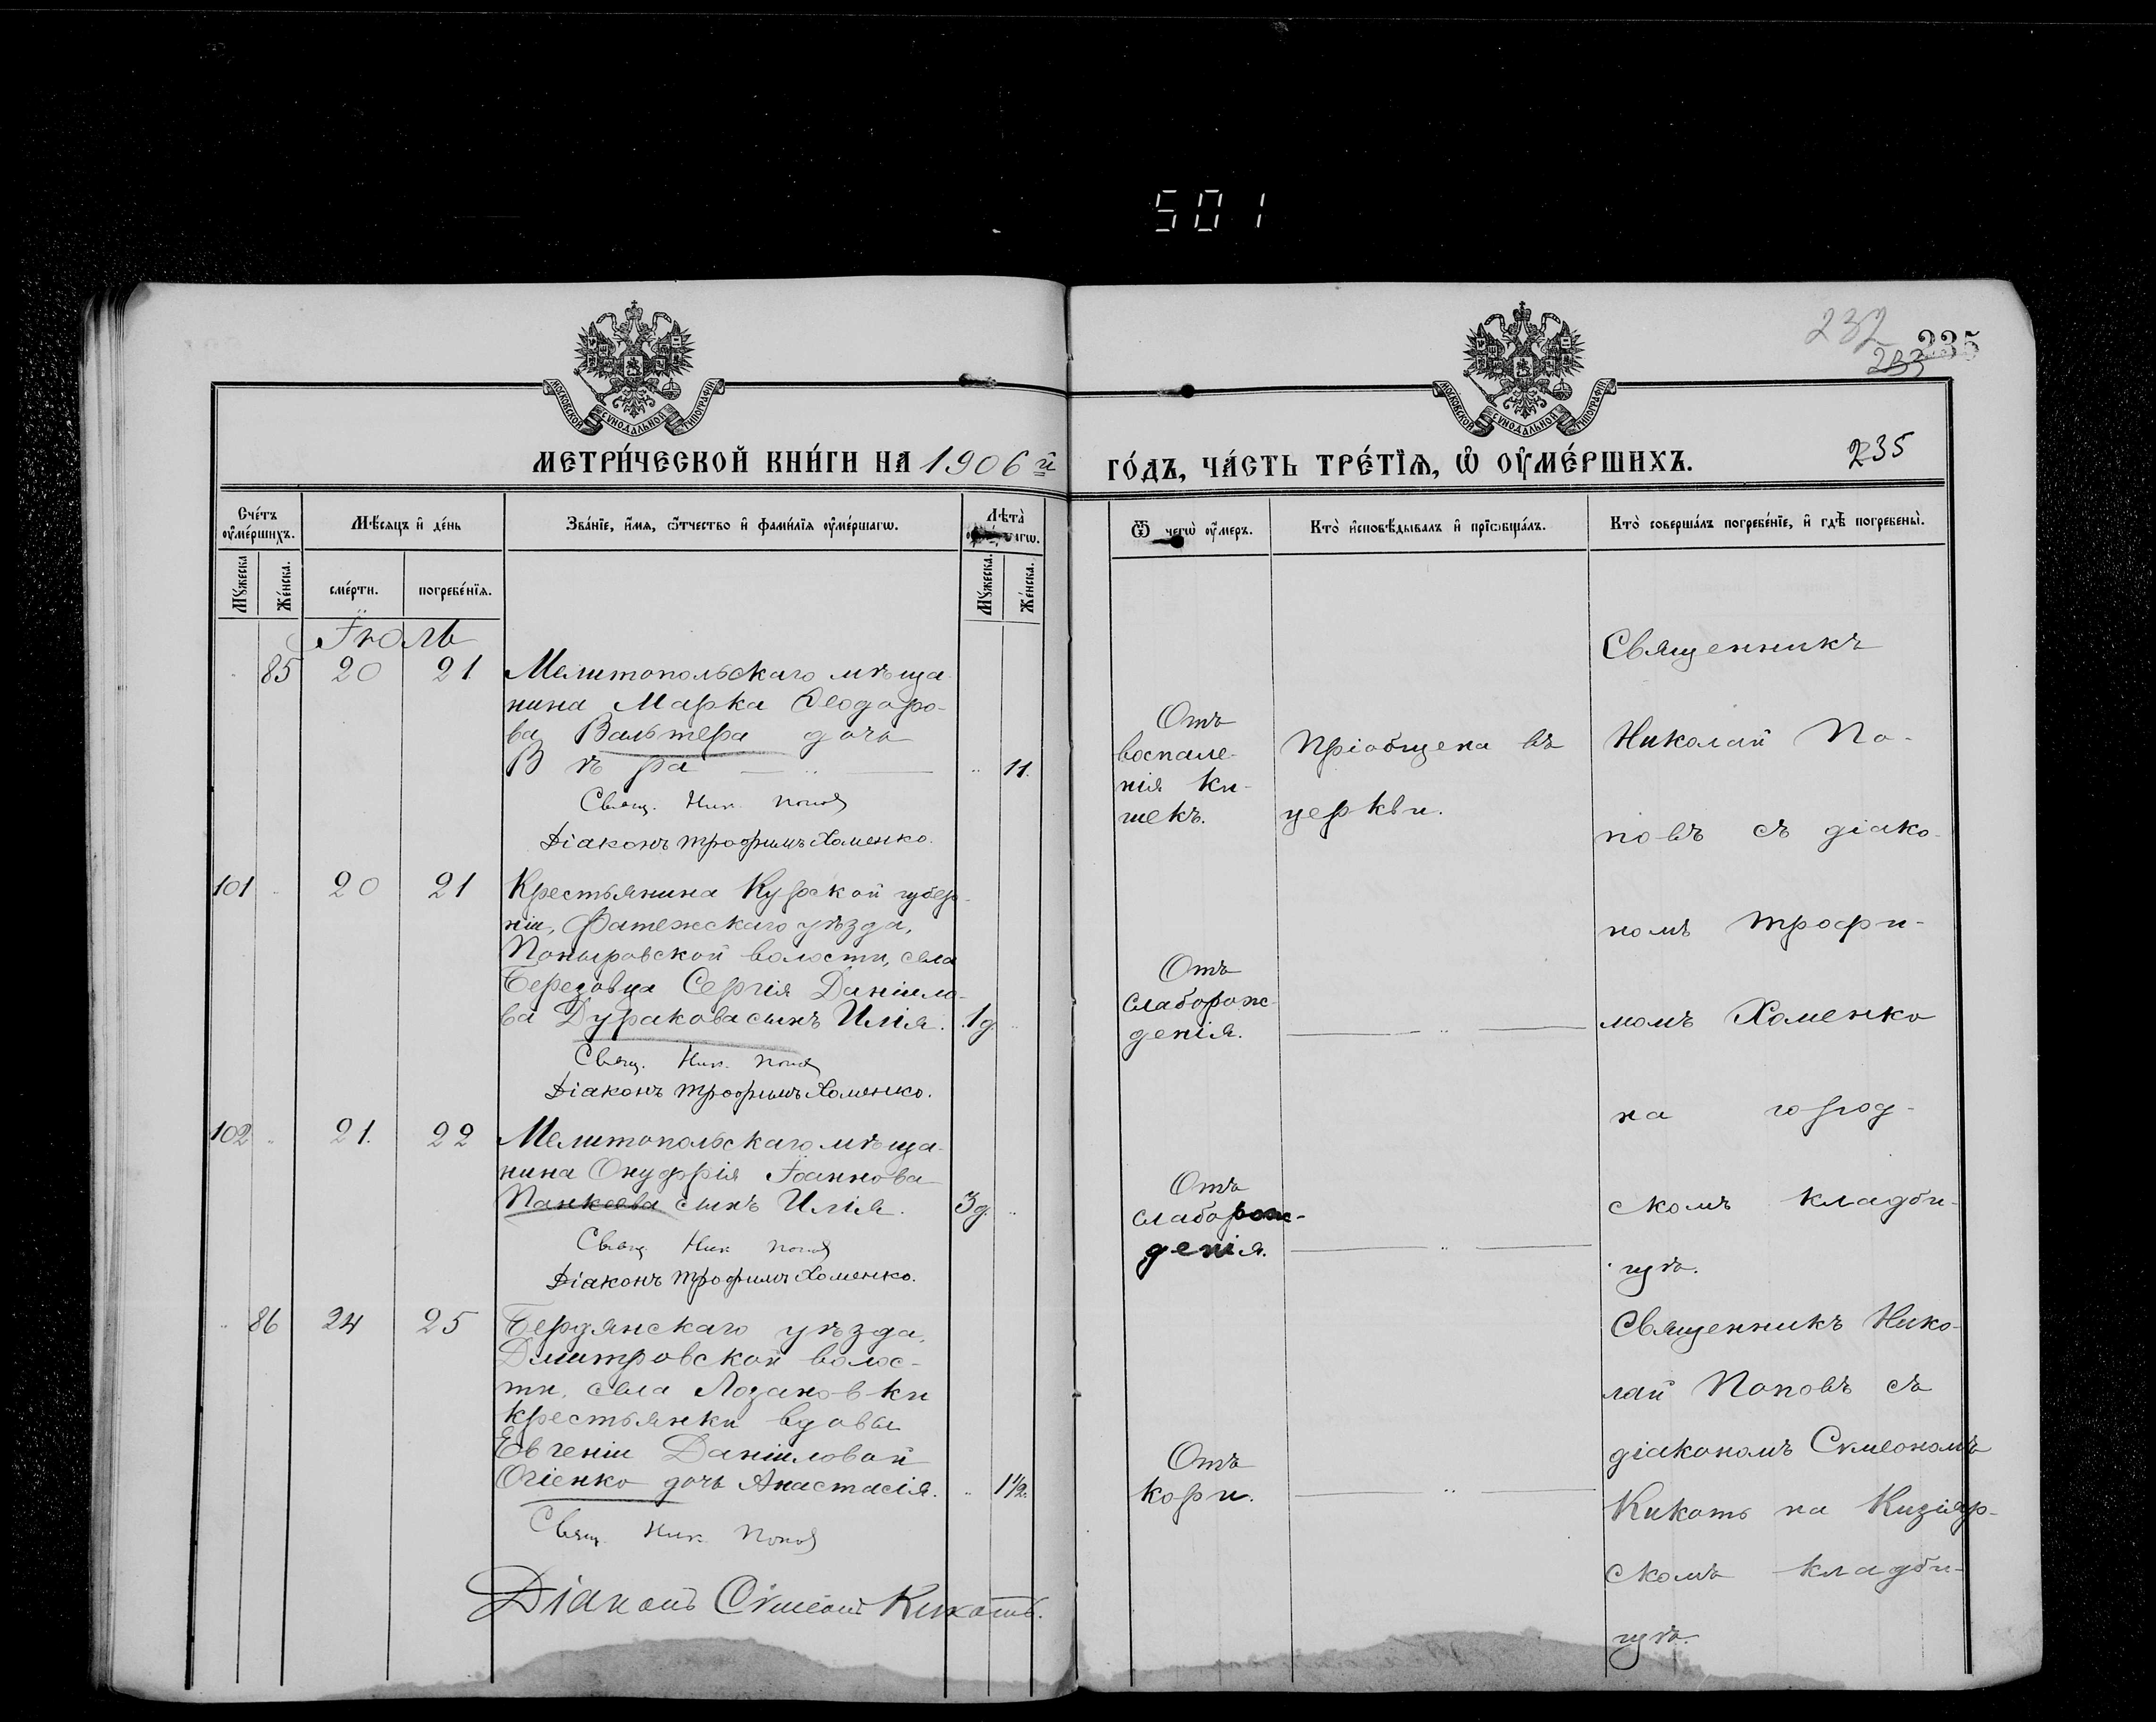 501
232
235
233
МОСКОВСКОЙ СѴНОДАЛЬНОЙ ТИПОГРАФІИ
МОСКОВСКОЙ СѴНОДАЛЬНОЙ ТИПОГРАФІИ
МЕТРИ́ЧЕСКОЙ КНИ́ГИ НА 1906 й
ГО́ДЪ, ЧА́СТЬ ТРЕ́ТІѦ, Ѡ҆ ОУ҆МЕ́РШИХЪ.
235
Сче́тъ оу҆ме́ршихъ.
Мѣ́сяцъ и҆ де́нь
Зва́ніе, и҆́мя, ѻ҆́тчество и҆ фами́лія оу҆ме́ршагѡ.
Лѣта̀
Ѿ чегѡ̀ оу҆́меръ.
Кто̀ и҆сповѣ́дывалъ и҆ прїѡбща́лъ.
Кто̀ соверша́лъ погребе́ніе, и҆ гдѣ̀ погребены̀.
Му́жеска
Же́нска.
сме́рти.
погребе́нїя.
Му́жеска.
Же́нска.
Іюль
85 20 21 Мелитопольскаго мѣща-
нина Марка Ѳеодоро-
ва Вальтера дочь
Вѣра — „ — „ 11.
Свящ. Ник. Попов
Діаконъ Трофимъ Хоменко.
Отъ
воспале-
нія ки-
шекъ.
Пріобщена въ
церкви.
Священникъ
Николай По-
повъ съ діако-
номъ Трофи-
момъ Хоменко
на город-
скомъ кладби-
щѣ.
101 „ 20 21 Крестьянина Курской губер-
ніи, Фатежскаго уѣзда,
Поныровской волости, села
Березовца Сергія Даніило-
ва Дуракова сынъ Илія. 1 д. „
Свящ. Ник. Попов
Діаконъ Трофимъ Хоменко.
Отъ
слаборож-
денія.
— „ —
102 „ 21. 22 Мелитопольскаго мѣща-
нина Онуфрія Іоаннова
Панкеева сынъ Илія. 3 д. „
Свящ. Ник. Попов
Діаконъ Трофимъ Хоменко.
Отъ
слаборож-
денія.
— „ —
„ 86 24 25 Бердянскаго уѣзда,
Дмитровской волос-
ти, села Лозановки
крестьянки вдовы
Евгеніи Даніиловой
Огіенко дочь Анастасія. „ 1½.
Свящ. Ник. Попов
Діаконъ Сѵмеонъ Кикоть.
Отъ
кори.
— „ —
Священникъ Нико-
лай Поповъ съ
діакономъ Сѵмеономъ
Кикоть на Кизіяр-
скомъ кладби-
щѣ.